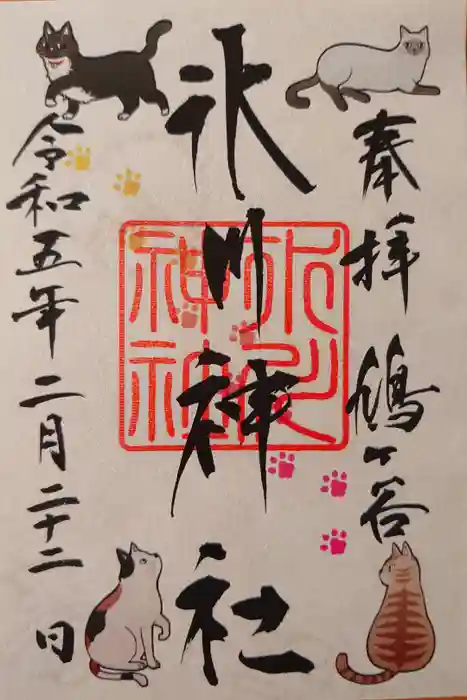 奉拝 鳩ヶ谷
氷川神社
令和五年二月二十二日
氷川
神社